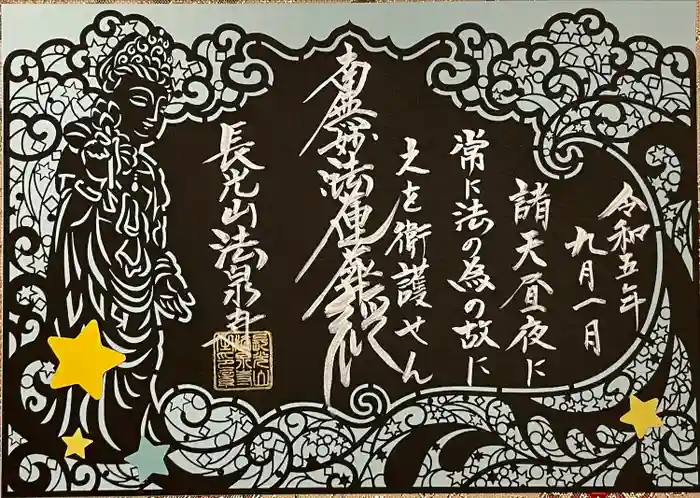 令和五年
九月一日
諸天昼夜に
常に法の為の故に
之を衛護せん
南無妙法蓮華経
長光山法泉寺